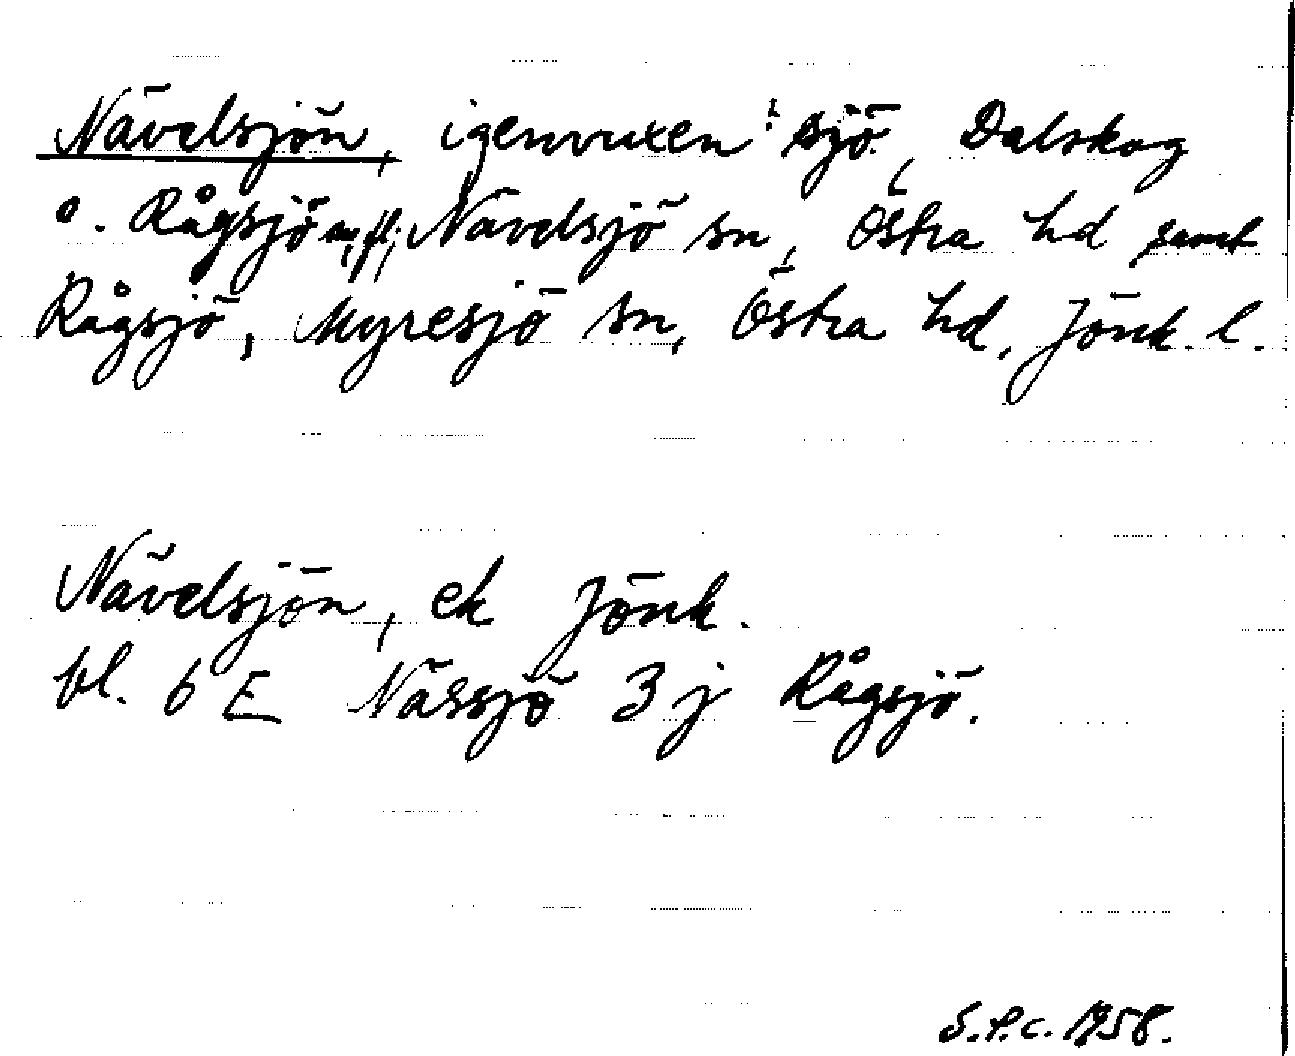 Nävelsjön, igenvuxen sjö, Dalskog
o. Rågsjö m. fl., Nävelsjö sn, Östra hd samt
Rågsjö, Myresjö sn, Östra hd, Jönk. l.
Nävelsjön, ek Jönk.
bl. 6 E Nässjö 3 j Rågsjö.
S.P.C. 1958.